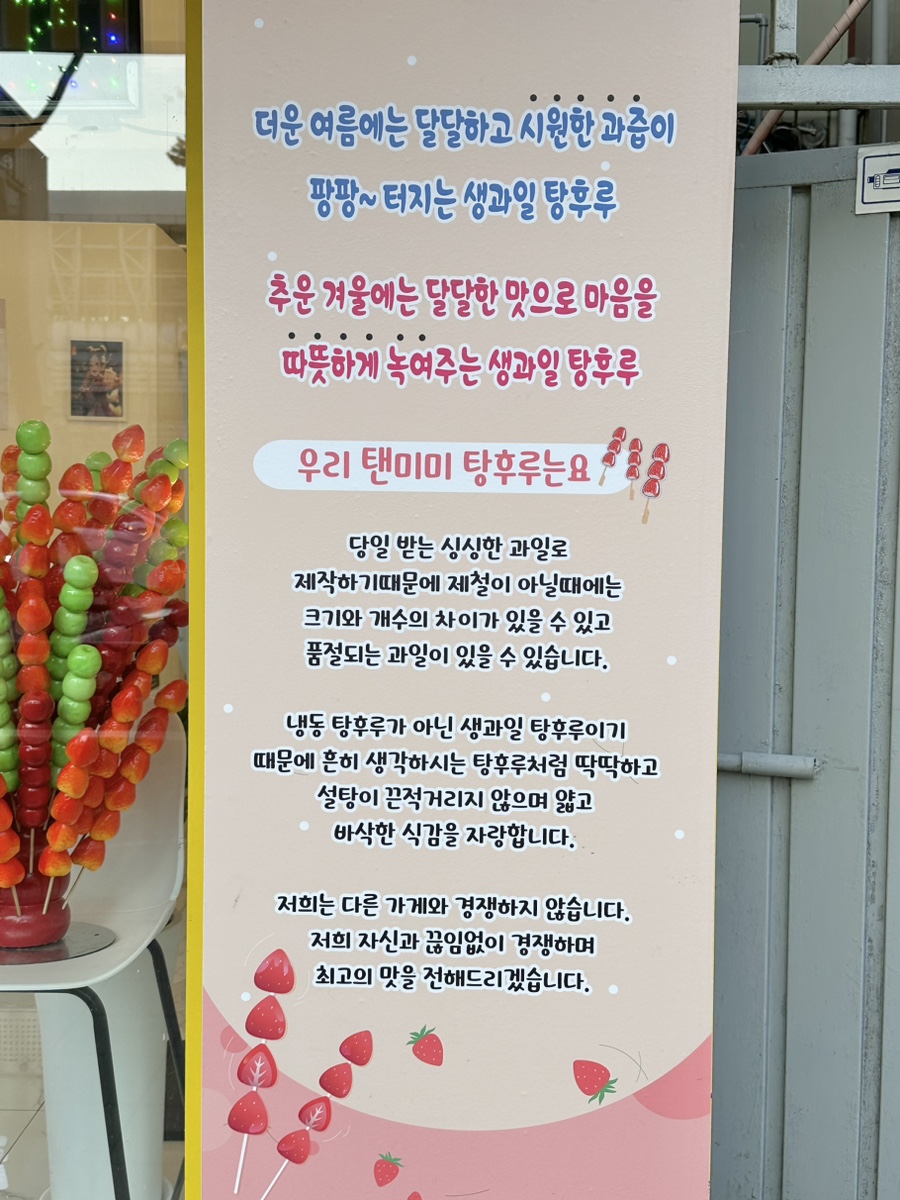 더운 여름에는 달달하고 시원한 과즙이
팡팡~ 터지는 생과일 탕후루
추운 겨울에는 달달한 맛으로 마음을
따뜻하게 녹여주는 생과일 탕후루
우리 탠미미 탕후루는요
당일 받는 싱싱한 과일로
제작하기때문에 제철이 아닐때에는
크기와 개수의 차이가 있을 수 있고
품절되는 과일이 있을 수 있습니다.
냉동 탕후루가 아닌 생과일 탕후루이기
때문에 흔히 생각하시는 탕후루처럼 딱딱하고
설탕이 끈적거리지 않으며 얇고
바삭한 식감을 자랑합니다.
저희는 다른 가게와 경쟁하지 않습니다.
저희 자신과 끊임없이 경쟁하며
최고의 맛을 전해드리겠습니다.